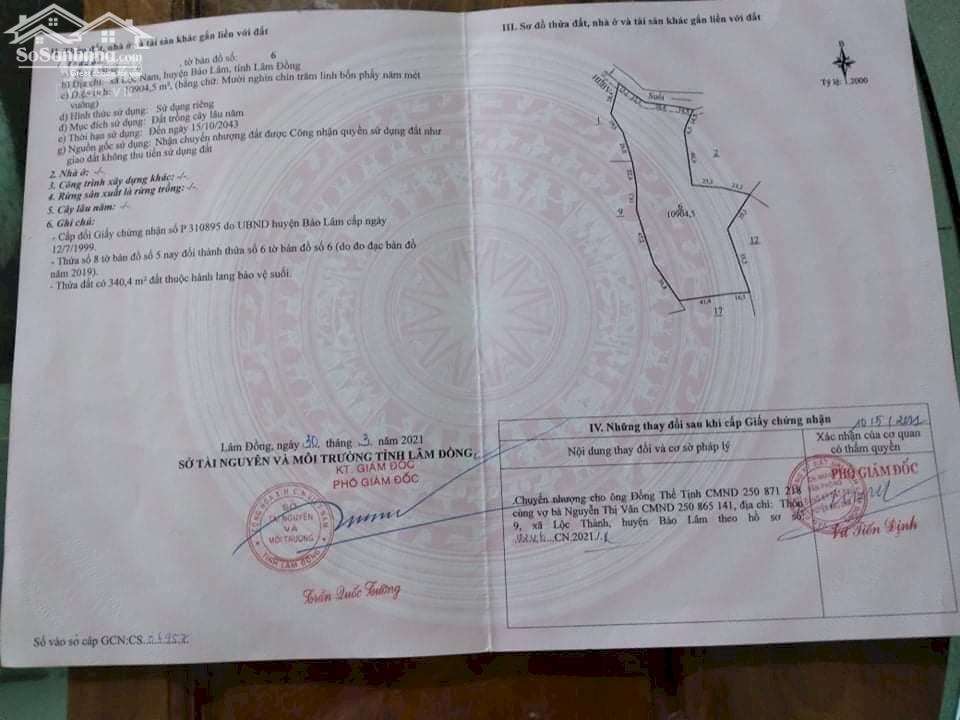 SoSanhnha.com
Great choice for you
II. Thửa đất, nhà ở và tài sản khác gắn liền với đất
, tờ bản đồ số: 6
b) Địa chỉ: xã Lộc Nam, huyện Bảo Lâm, tỉnh Lâm Đồng
c) Diện tích: 10904,5 m², (bằng chữ: Mười nghìn chín trăm linh bốn phẩy năm mét
vuông)
d) Hình thức sử dụng: Sử dụng riêng
đ) Mục đích sử dụng: Đất trồng cây lâu năm
e) Thời hạn sử dụng: Đến ngày 15/10/2043
g) Nguồn gốc sử dụng: Nhận chuyển nhượng đất được Công nhận quyền sử dụng đất như
giao đất không thu tiền sử dụng đất
2. Nhà ở: -/-
3. Công trình xây dựng khác: -/-
4. Rừng sản xuất là rừng trồng: -/-
5. Cây lâu năm: -/-
6. Ghi chú:
- Cấp đổi Giấy chứng nhận số P 310895 do UBND huyện Bảo Lâm cấp ngày
12/7/1999.
- Thửa số 8 tờ bản đồ số 5 nay đổi thành thửa số 6 tờ bản đồ số 6 (do đo đạc bản đồ
năm 2019).
- Thửa đất có 340,4 m² đất thuộc hành lang bảo vệ suối.
Lâm Đồng, ngày 30 tháng 3 năm 2021
SỞ TÀI NGUYÊN VÀ MÔI TRƯỜNG TỈNH LÂM ĐỒNG
KT. GIÁM ĐỐC
PHÓ GIÁM ĐỐC
SỞ
TÀI NGUYÊN
VÀ
MÔI TRƯỜNG
TỈNH LÂM ĐỒNG
Trần Quốc Tường
Số vào sổ cấp GCN:CS
III. Sơ đồ thửa đất, nhà ở và tài sản khác gắn liền với đất
B
Tỷ lệ: 1:2000
Suối
1
2
9
6
10904,5
12
41,4
17
IV. Những thay đổi sau khi cấp Giấy chứng nhận
Nội dung thay đổi và cơ sở pháp lý
Xác nhận của cơ quan
có thẩm quyền
Chuyển nhượng cho ông Đồng Thế Tịnh CMND 250 871 218
cùng vợ bà Nguyễn Thị Vân CMND 250 865 141, địa chỉ: Thôn
9, xã Lộc Thành, huyện Bảo Lâm theo hồ sơ số
CN.2021./.
PHÓ GIÁM ĐỐC
Vũ Tiến Định